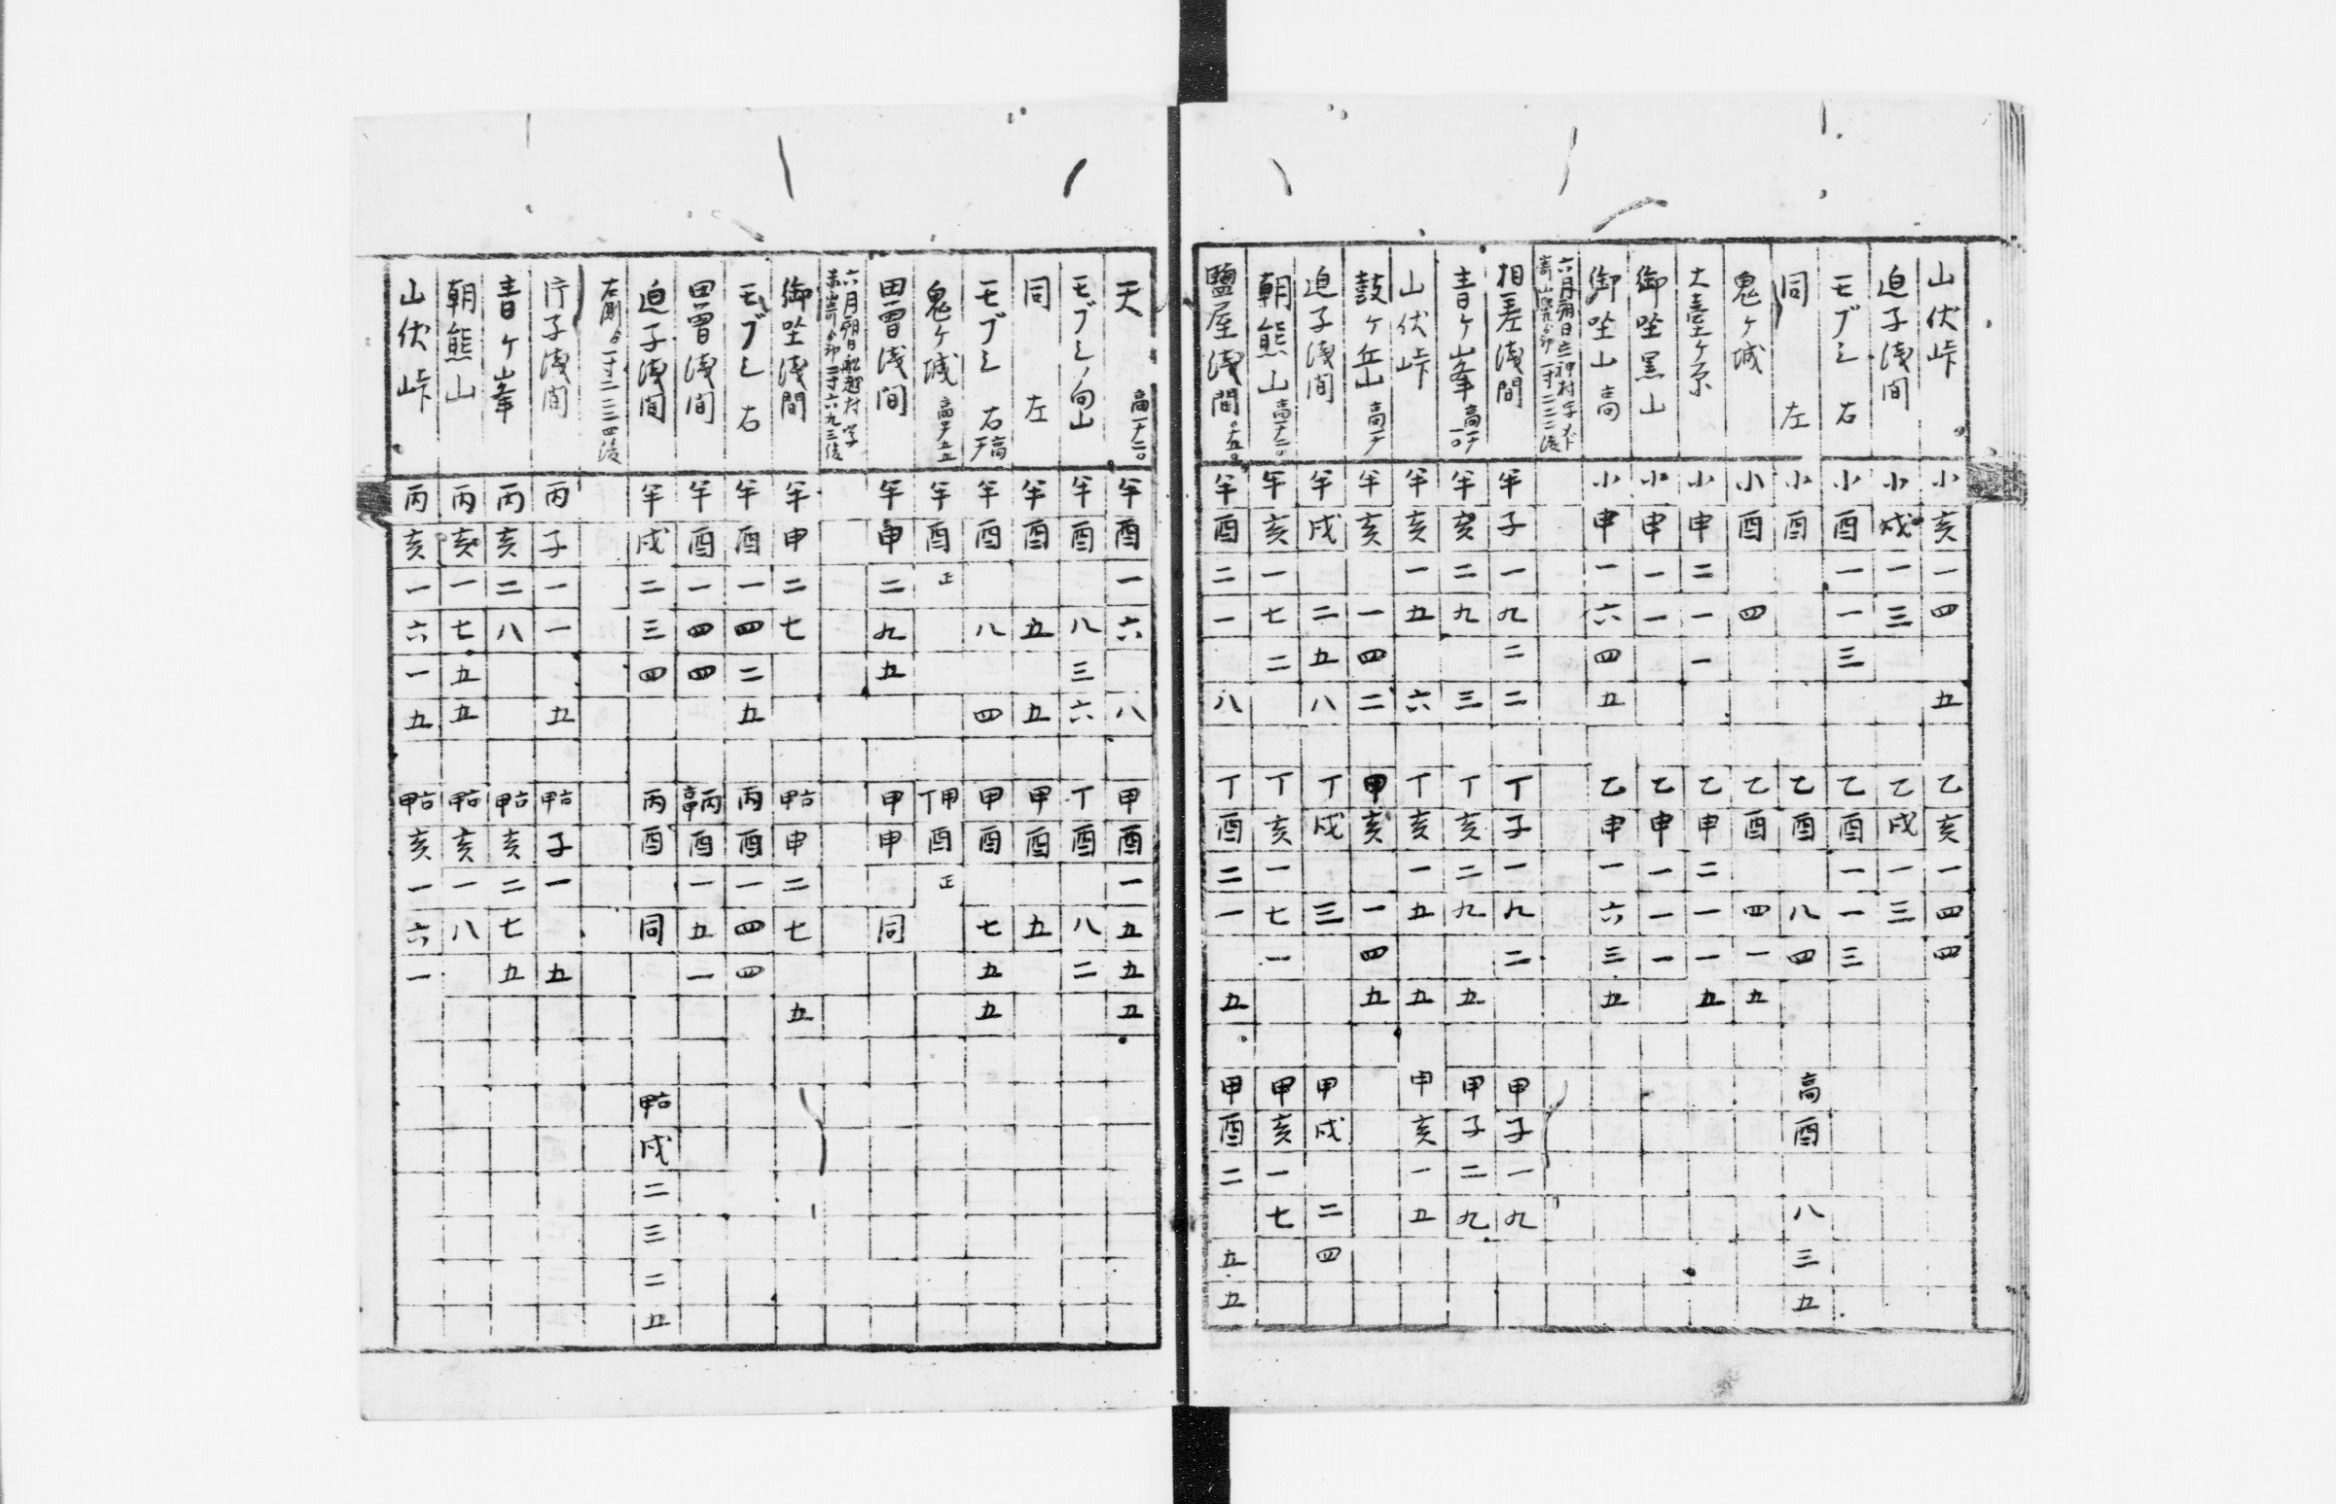 山伏峠 小亥一四 五 乙亥一四四
迫子浅間 小戌一三 乙戌一三
モブシ 右 小酉一一三 乙酉一一三
同 左 小酉 乙酉 八四 高酉 八三五
鬼ヶ城 小酉 四 乙酉 四一五
大臺ヶ原 小申二一一 乙申二一一五
御坐黒山 小申一一 乙申一一一
御坐山 高 小申一六四五 乙申一六三五
六月朔日立神村字
相差浅間 半子一九二二 丁子一九二 甲子一九
青ヶ峯 高十一〇 半亥二九 三 丁亥二九 五 甲子二九
山伏峠 半亥一五 六 丁亥一五 五 甲亥一五
鼓ヶ岳山 高十 半亥 一四二 甲亥 一四五
迫子浅間 半戌 二五八 丁戌 三 甲戌 二四
朝熊山 高十二〇 半亥一七二 丁亥一七一 甲亥一七
鹽屋浅間 半酉二一 八 丁酉二一 五 甲酉二 五五
天 高十二〇 半酉一六 八 甲酉一五五五
モブシノ向山 半酉 八三六 丁酉 八二
同 左 半酉 五 五 甲酉 五
モブシ 右 半酉 八 四 甲酉 七五五
鬼ヶ城 半酉正 丁甲酉正
田曽浅間 半申二九五 甲申 同
六月朔日船越村字
御坐浅間 半申二七 甲古申二七 五
モブシ 右 半酉一四二五 丙酉一四四
田曽浅間 半酉一四四 丙酉一五一
迫子浅間 半戌二三四 丙酉 同 甲古戌二三二五
右側 一寸二二三四後
片子浅間 丙子一一 五 甲古子一 五
青ヶ峯 丙亥二八 甲古亥二七五
朝熊山 丙亥一七五五 甲古亥一八
山伏峠 丙亥一六一五 甲古亥一六一